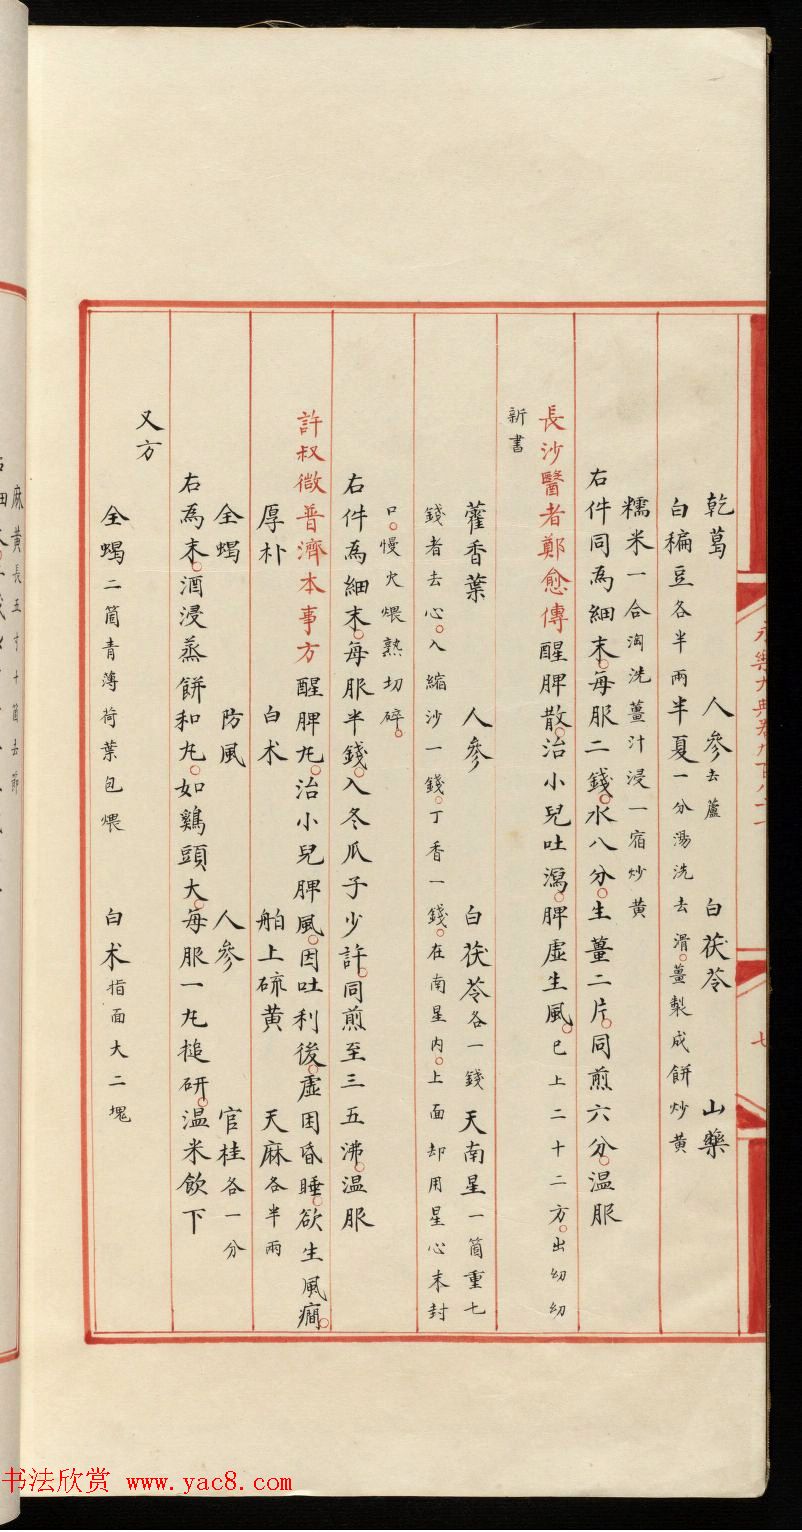 乾葛 人參去蘆 白茯苓 山藥
白稨豆各半兩半夏一分湯洗去滑。薑製成餅炒黃
糯米一合淘洗薑汁浸一宿炒黃
右件同為細末。每服二錢。水八分。生薑二片。同煎六分。温服
長沙醫者鄭愈傳醒脾散。治小兒吐瀉。脾虛生風。已上二十二方。出幼幼
新書
藿香葉 人參 白茯苓各一錢 天南星一箇重七
錢者去心。入縮沙一錢。丁香一錢。在南星内。上面却用星心末封
口。慢火煨熟切碎。
右件為細末。每服半錢。入冬瓜子少許。同煎至三五沸。温服
許叔微普濟本事方醒脾丸。治小兒脾風。因吐利後。虛困昏睡。欲生風癇。
厚朴 白术 舶上硫黄 天麻各半兩
全蝎 防風 人參 官桂各一分
右為末。酒浸蒸餅和丸。如鷄頭大。每服一丸槌研。温米飲下
又方
全蝎二箇青薄荷葉包煨 白术指面大二塊
麻黃長五寸十箇去節
永樂大典卷九百八十一
七
书法欣赏 www.yac8.com